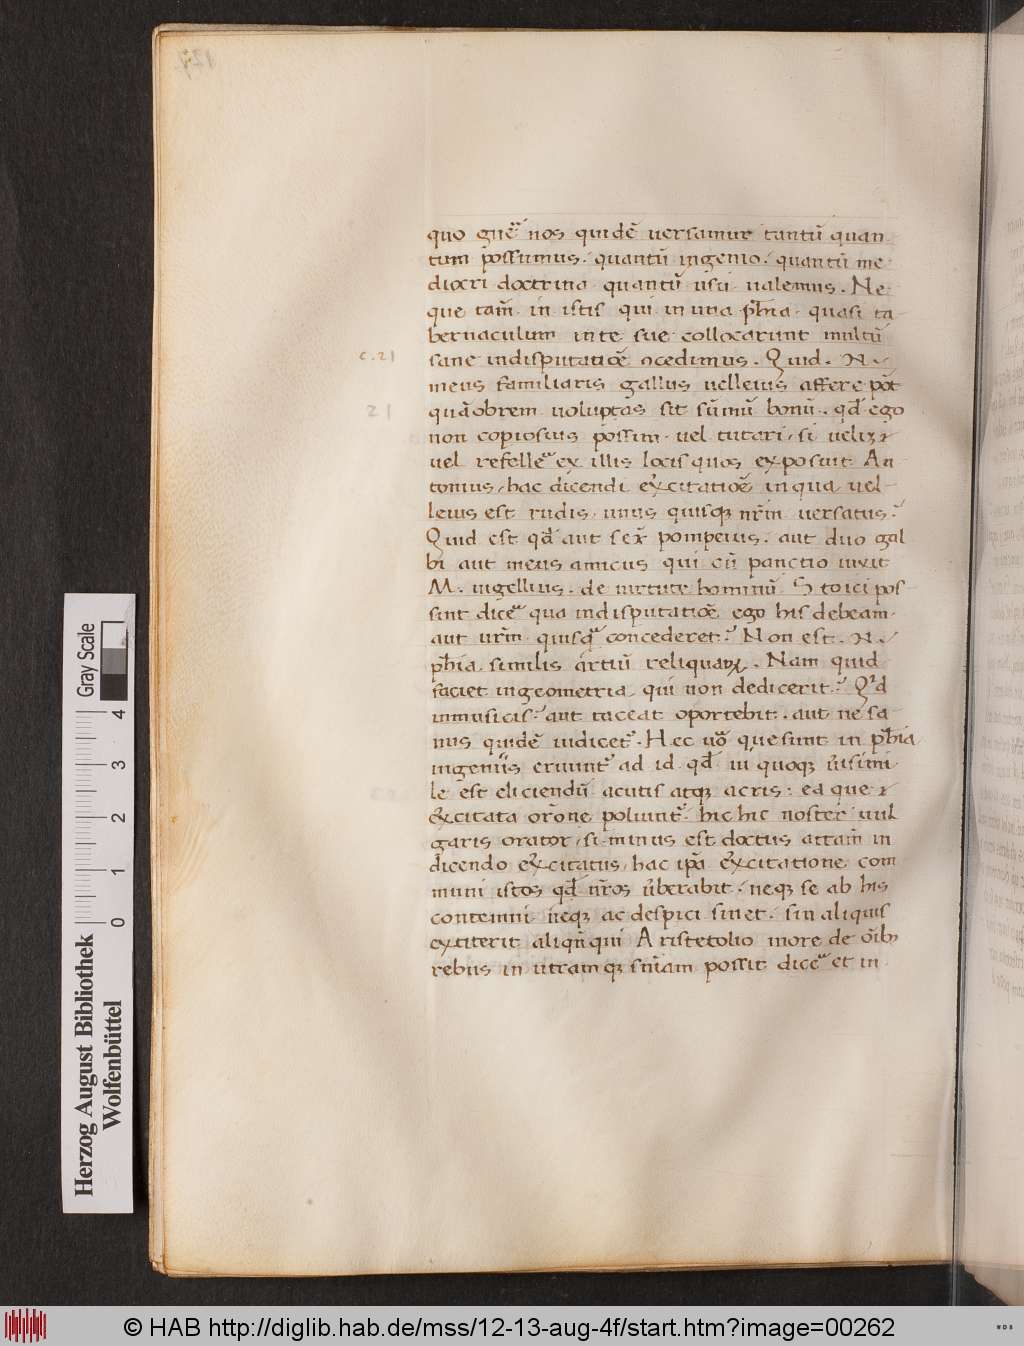 127
quo gn̄e nos quidē versamur tantū quan
tum possumus. quantū ingenio. quantū me
diocri doctrina quantū usu valemus. Ne
que tam̄ in istis qui in una ph̄ia quasi ta
bernaculum inte sue collocarunt multū
c.21 sane indisputatiōe ɔcedimus. Quid. N.
meus familiaris gallus velleius affere pōt
21 quāobrem voluptas sit sūmū bonū. qđ ego
non copiosius possim vel tutari, si veliʒ
vel refelle ex illis locis quos exposuit An
tonius, hac dicendi exꝰcitatiōe inqua vel
leius est rudis, unus quisqꝫ nr̄m versatus?
Quid est qđ aut sex pompeius. aut duo gal
bi aut meus amicus qui cū panctio vivit
M. vigellius. de virtute hominū Stoici pos
sint dice qua indisputatiōe ego his debeam
aut vr̄m quisqā concederet? Non est. N.
ph̄ia similis artiū reliquaꝝ. Nam quid
faciet ingeometria, qui non dedicerit? Qd
inmusicis? aut taceat oportebit. aut ne sa
nus quidē iudicet. Hec vō que sunt in ph̄ia
ingeniis eruunt ad id qđ in quoqꝫ v̓isimi
le est eliciendū acutis atqꝫ acris: ea que
exꝰcitata or̄one poliunt. hic hic noster vul
garis orator, si minus est doctus attam̄ in
dicendo exꝰcitatus, hac ip̄a exꝰcitatione com
muni istos qđ nr̄os v̓berabit. neqꝫ se ab his
contemni neqꝫ ac despici sinet. sin aliquis
extiterit aliqn̄ qui Aristetolio more de oīb;
rebus in utram qꝫ sn̄iam possit dice et in
Herzog August Bibliothek
Wolfenbüttel
Gray Scale
0 1 2 3 4
© HAB http://diglib.hab.de/mss/12-13-aug-4f/start.htm?image=00262